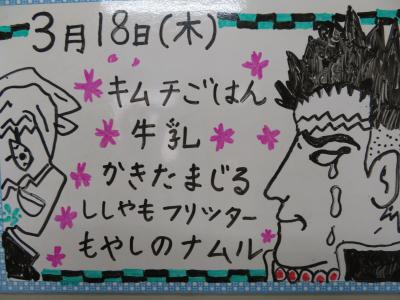 3月18日(木)
キムチごはん
牛乳
かきたまじる
ししゃもフリッター
もやしのナムル